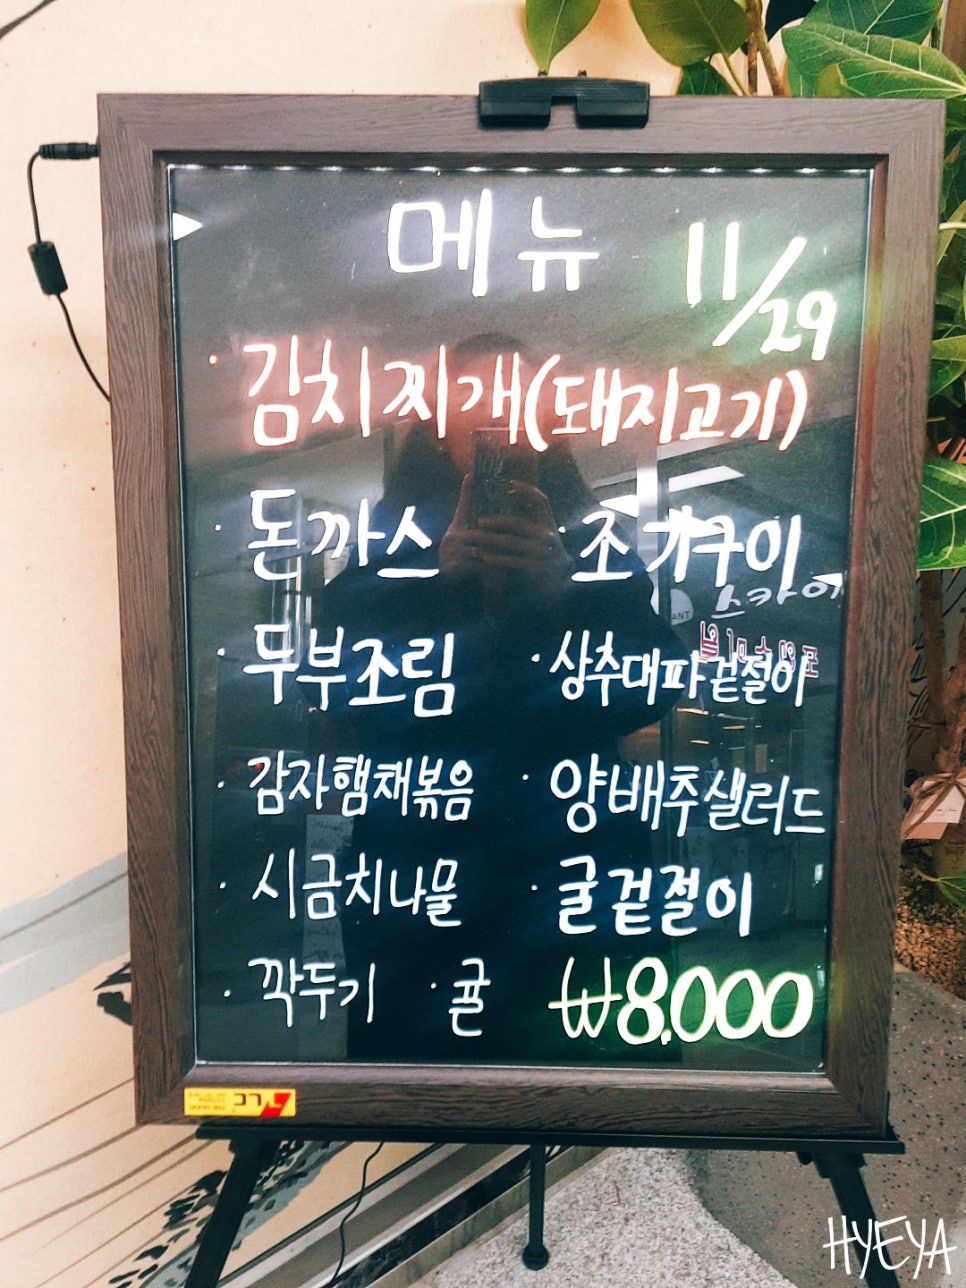 메뉴 11/29
· 김치찌개(돼지고기)
· 돈까스 · 조기구이
· 두부조림 · 상추대파겉절이
· 감자햄채볶음 · 양배추샐러드
· 시금치나물 · 굴겉절이
· 깍두기 · 귤 ₩8,000
HYEYA